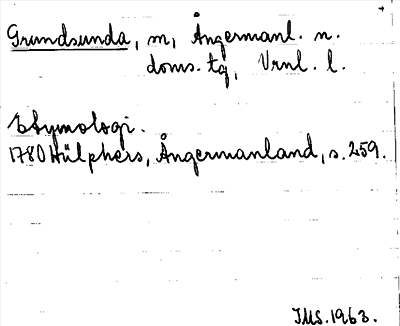 Grundsunda, m, Ångermanl. n.
doms. tg, Vrnl. l.
Etymologi.
1780 Hülphers, Ångermanland, s. 259.
IMS. 1963.